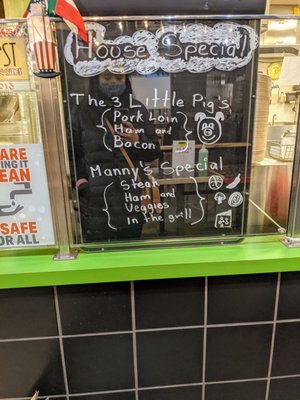 House Special
The 3 Little Pig's
Pork Loin
Ham and
Bacon
Manny's Special
Steak
Ham and
Veggies
In the grill
ARE
NG IT
EAN
SAFE
OR ALL